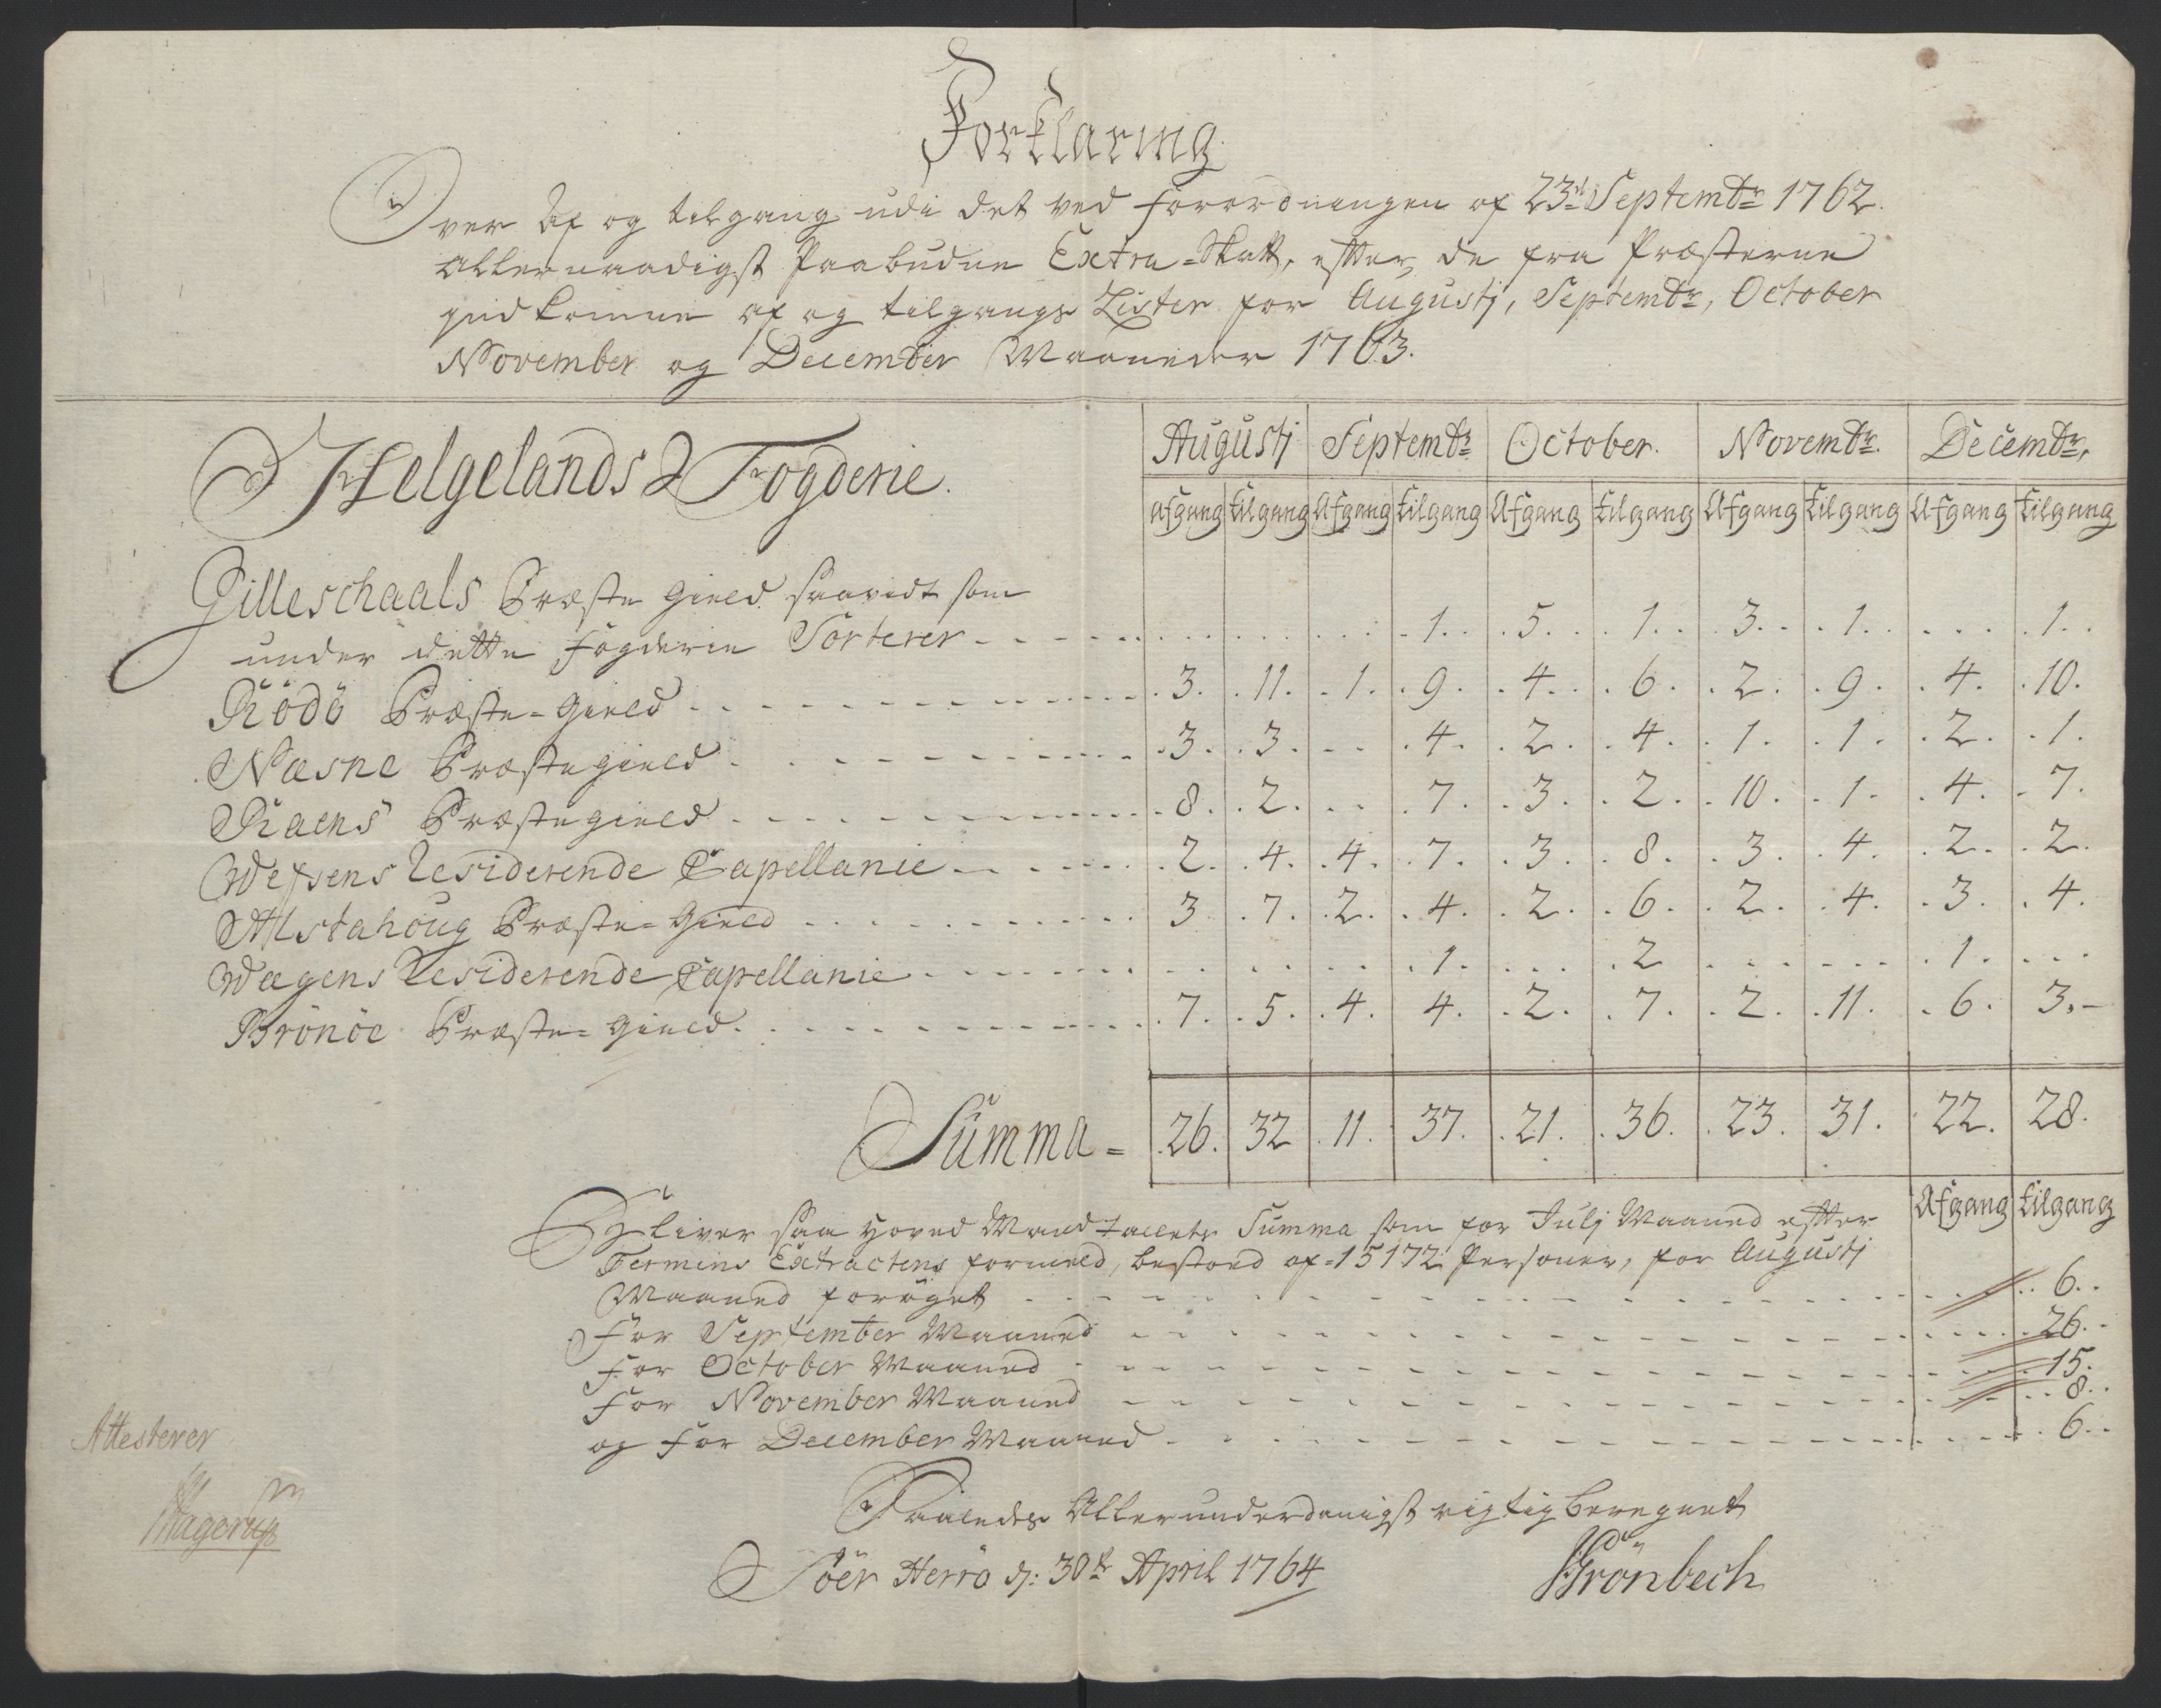 Forklaring
Over Af og tilgang udi det ved Forordningen af 23d Septembr 1762.
Allernaadigst Paabudne Extra-Skatt, efter de fra Præsterne
indkomne af og tilgangs Lister for Augustj, Septembr, October
November og December Maaneder 1763.
Helgelands Fogderie.
Augustj Septembr October. Novembr. Decembr,
Afgang tilgang Afgang tilgang Afgang tilgang Afgang tilgang Afgang tilgang
Gilleschaals Præste Gield saavidt som
under dette Fogderie Sorterer - - - - . . . . . . . . 1. . 5. . 1. . 3. . 1. . . . . 1. .
Rödö Præste-Gield - - - - 3. 11. 1. 9. 4. 6. 2. 9. 4. 10.
Næsne Præstegield - - - - 3. 3. - - 4. 2. 4. 1. 1. 2. 1.
Raens Præstegield - - - - 8. 2. . . 7. 3. 2. 10. 1. 4. 7.
Wefsens Residerende Capellanie - - - - 2. 4. 4. 7. 3. 8. 3. 4. 2. 2.
Alstahoug Præste-Gield - - - - 3 7. 2. 4. 2. 6. 2. 4. 3. 4.
Wægens Residerende Capellanie - - - - . . . . . . 1. . . . 2 . . . - - - 1. . . .
Brönöe Præste-Gield. - - - - 7. 5. 4. 4. 2. 7. 2. 11. 6. 3. -
Summa = 26. 32 11. 37. 21. 36. 23. 31. 22. 28.
Afgang tilgang
Bliver saa Hoved Mandtallets Summa som for Julj Maaned efter
Termins Extractens formeld, bestoed af 15172 Personer, for Augustj
Maaned forøget - - - - 6. .
For September Maaned - - - - 26. .
For October Maaned - - - - 15.
For November Maaned - - - - 8. .
og For December Maaned - - - - 6. .
Saaledes Allerunderdanigst rigtig beregnet
Söer Herrö d: 30te April 1764
Grönbech
Attesterer
Hagerup